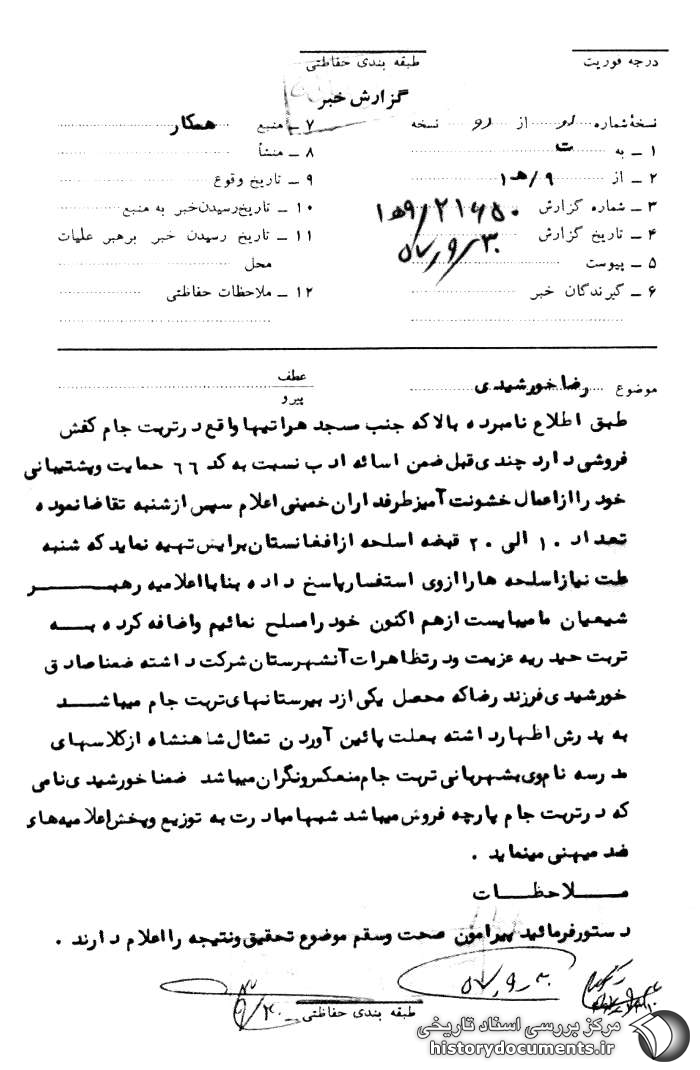 درجه فوریت
طبقه بندی حفاظتی
گزارش خبر
نسخهٔ شماره ۰۱ از ۰۱ نسخه
۱ ـ به ت
۲ ـ از ۹/هـ۱
۳ ـ شماره گزارش ۹/۲۱۶۵۰هـ۱
۴ ـ تاریخ گزارش ۵۷٫۹٫۳۰
۵ ـ پیوست
۶ ـ گیرندگان خبر
۷ ـ منبع همکار
۸ ـ منشأ
۹ ـ تاریخ وقوع
۱۰ ـ تاریخ رسیدن خبر به منبع
۱۱ ـ تاریخ رسیدن خبر برهبر عملیات
محل
۱۲ ـ ملاحظات حفاظتی
موضوع رضا خورشیدی
عطف
پیرو
طبق اطلاع نامبرده بالا که جنب مسجد هراتیها واقع در تربت جام کفش
فروشی دارد چندی قبل ضمن اسائه ادب نسبت به کد ۶۶ حمایت و پشتیبانی
خود را از اعمال خشونت آمیز طرفداران خمینی اعلام سپس از شنبه تقاضا نموده
تعداد ۱۰ الی ۲۰ قبضه اسلحه از افغانستان برایش تهیه نماید که شنبه
علت نیاز اسلحه ها را از وی استفسار پاسخ داده بنا با اعلامیه رهبر
شیعیان ما میبایست از هم اکنون خود را مسلح نمائیم و اضافه کرده به
تربت حیدریه عزیمت و در تظاهرات آنشهرستان شرکت داشته ضمنا صادق
خورشیدی فرزند رضا که محصل یکی از دبیرستانهای تربت جام میباشد
به پدرش اظهار داشته بعلت پائین آوردن تمثال شاهنشاه از کلاسهای
مدرسه نام وی بشهربانی تربت جام منعکس و نگران میباشد ضمنا خورشیدی نامی
که در تربت جام پارچه فروش میباشد شبها مبادرت به توزیع و پخش اعلامیه های
ضد میهنی مینماید .
ملاحظات
دستور فرمائید پیرامون صحت و سقم موضوع تحقیق و نتیجه را اعلام دارند .
طبقه بندی حفاظتی
مرکز بررسی اسناد تاریخی
historydocuments.ir